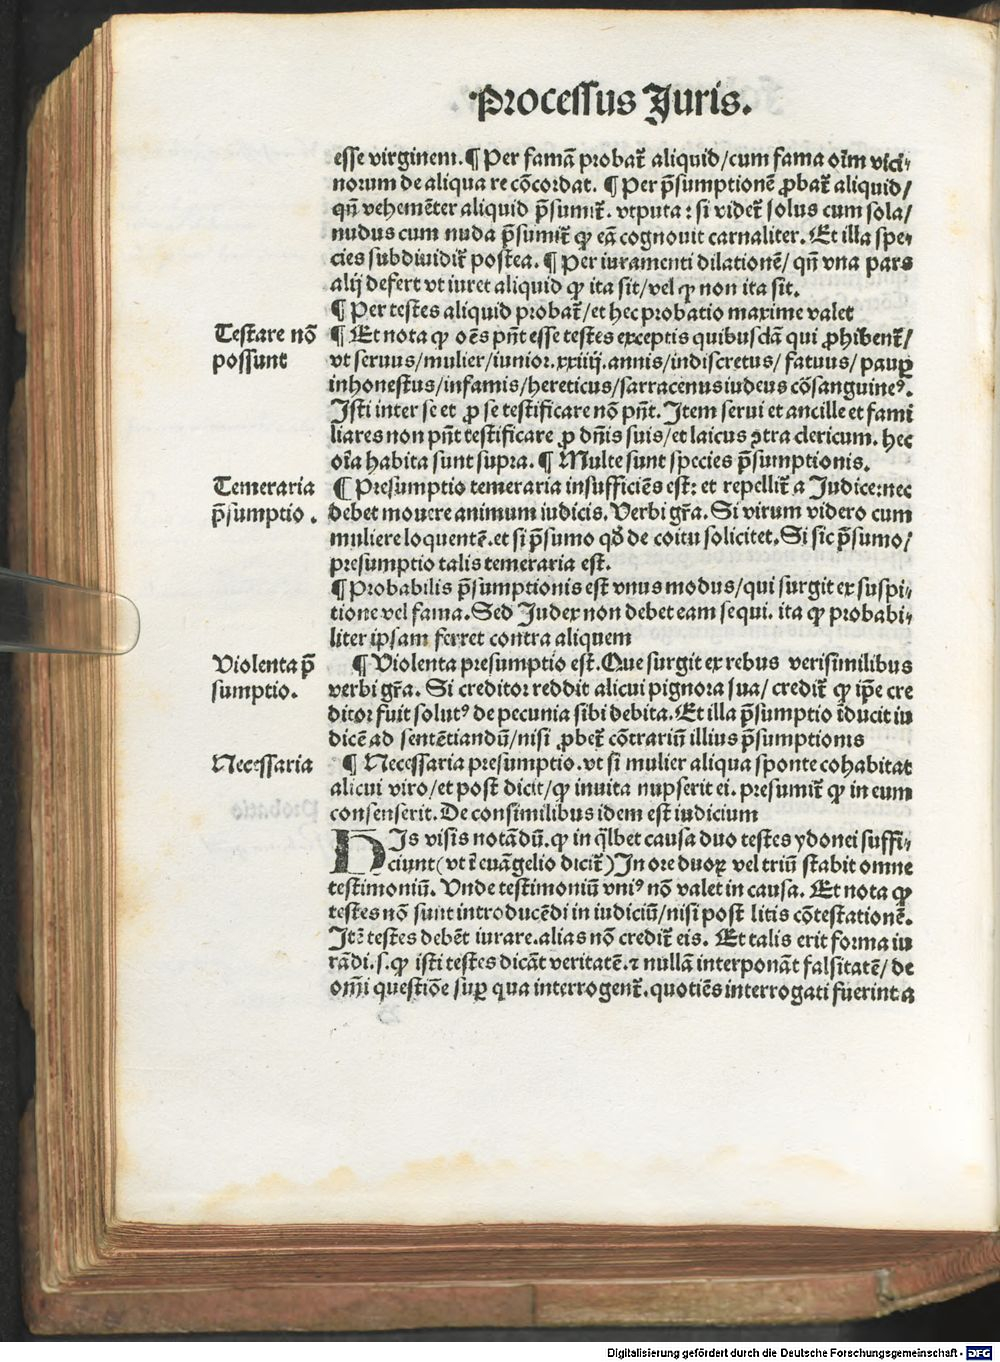 Processus Juris.
esse virginem. ¶ Per famā probat᷑ aliquid/cum fama oīm vici⸗
norum de aliqua re cōcordat. ¶ Per p̄sumptionē ꝓbat᷑ aliquid/
qn̄ vehemēter aliquid p̄sumit᷑. vtputa: si videt᷑ solus cum sola/
nudus cum nuda p̄sumit᷑ ꝙ eā cognouit carnaliter. Et illa spe⸗
cies subdiuidit᷑ postea. ¶ Per iuramenti dilationē/ qn̄ vna pars
alij defert vt iuret aliquid ꝙ ita sit/vel ꝙ non ita sit.
¶ Per testes aliquid probat᷑/et hec probatio maxime valet
Testare nō
possunt
¶ Et nota ꝙ oēs pn̄t esse testes exceptis quibusdā qui ꝓhibent᷑/
vt seruus/mulier/iunior.xxiiij.annis/indiscretus/ fatuus/ paup̲
inhonestus/infamis/hereticus/sarracenus iudeus cōsanguineꝰ.
Isti inter se et ꝓ se testificare nō pn̄t. Item serui et ancille et fami
liares non pn̄t testificare ꝓ dn̄is suis/et laicus ꝯtra clericum. hec
oīa habita sunt supra. ¶ Multe sunt species p̄sumptionis.
Temeraria
p̄sumptio.
¶ Presumptio temeraria insufficiēs est: et repellit᷑ a Judice: nec
debet mouere animum iudicis. Verbi gr̄a. Si virum videro cum
muliere loquentē.et si p̄sumo qđ de coitu solicitet. Si sic p̄sumo/
presumptio talis temeraria est.
¶ Probabilis p̄sumptionis est vnus modus/qui surgit ex suspi⸗
tione vel fama. Sed Judex non debet eam sequi. ita ꝙ probabi⸗
liter ipsam ferret contra aliquem
Violenta p̄
sumptio.
¶ Violenta presumptio est. Que surgit ex rebus verisimilibus
verbi gr̄a. Si creditor reddit alicui pignora sua/ credit᷑ ꝙ ip̄e cre
ditor fuit solutꝰ de pecunia sibi debita. Et illa p̄sumptio īducit iu
dicē ad sentētiandū/nisi ꝓbet᷑ cōtrariū illius p̄sumptionis
Necessaria
¶ Necessaria presumptio. vt si mulier aliqua sponte cohabitat
alicui viro/et post dicit/ꝙ inuita nupserit ei. presumit᷑ ꝙ in eum
consenserit. De consimilibus idem est iudicium
HIs visis notādū. ꝙ in q̄lbet causa duo testes ydonei suffi⸗
ciunt (vt ī euāgelio dicit᷑) In ore duoꝝ vel triū stabit omne
testimoniū. Vnde testimoniū vniꝰ nō valet in causa. Et nota ꝙ
testes nō sunt introducēdi in iudiciū/nisi post litis cōtestationē.
Itē testes debēt iurare.alias nō credit᷑ eis. Et talis erit forma iu
rādi.s.ꝙ isti testes dicāt veritatē.⁊ nullā interponāt falsitatē/ de
om̄i questiōe suꝑ qua interrogent᷑. quotiēs interrogati fuerint a
Digitalisierung gefördert durch die Deutsche Forschungsgemeinschaft - DFG